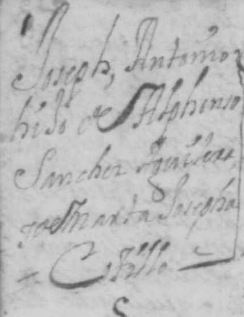 Joseph, Antonio
hijo de Alphonso
Sanchez Aguilera
y de Maria Josepha
Castillo